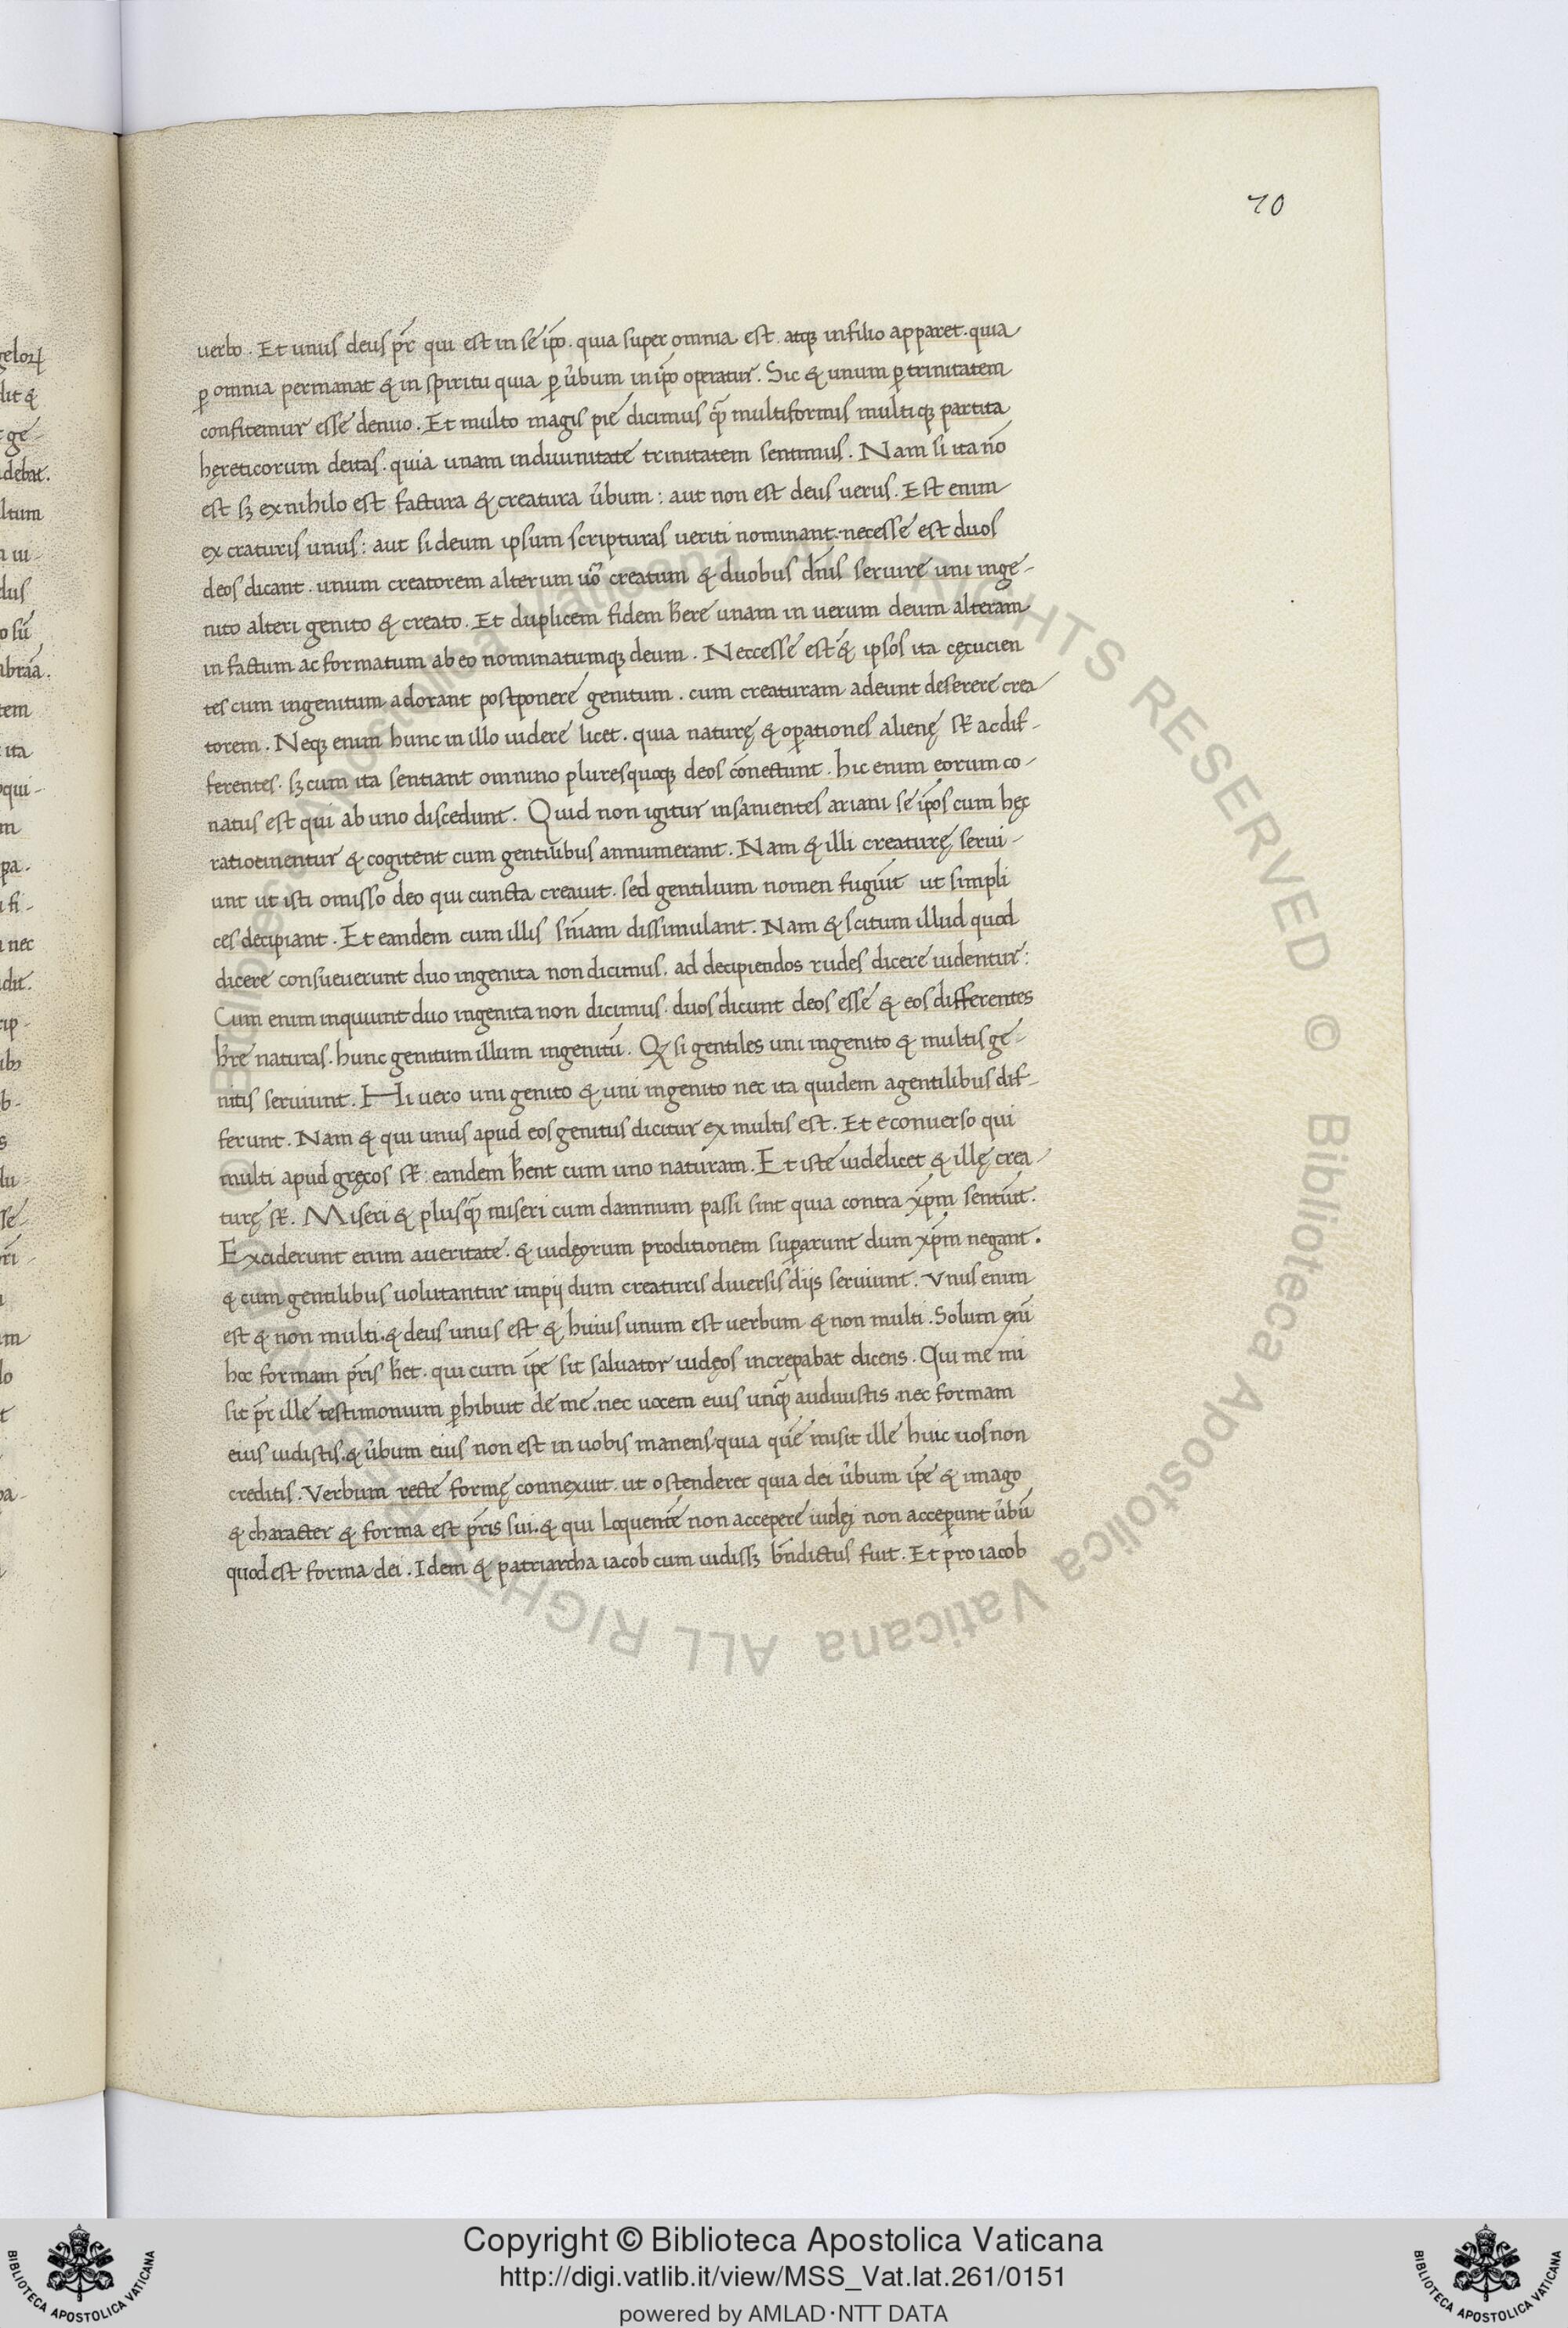 70
uerbo. Et unus deus pr̄ qui est in se ip̄o. quia super omnia est. atqꝫ in filio apparet. quia
ꝑ omnia permanat & in spiritu quia ꝑ u̓bum in ip̄o operatur. Sic & unum ꝑ trinitatem
confitemur esse denuo. Et multo magis pie dicimus qꝫ̄ multiformis multiqꝫ partita
hęreticorum deitas. quia unam indiuinitate trinitatem sentimus. Nam si ita nō
est sꝫ ex nihilo est factura & creatura u̓bum: aut non est deus uerus. Est enim
ex craturis unus: aut si deum ipsum scripturas ueriti nominant. necesse est duos
deos dicant. unum creatorem alterum uō creatum & duobus dn̄is seruire uni inge-
nito alteri genito & creato. Et duplicem fidem h̄ere unam in uerum deum alteram
in factum ac formatum ab eo nominatumqꝫ deum. Neccesse est & ipsos ita cęcucien
tes cum ingenitum adorant postponere genitum. cum creaturam adeunt deserere crea
torem. Neqꝫ enim hunc in illo uidere licet. quia naturę & oꝑationes alienę st̄ ac dif-
ferentes. sꝫ cum ita sentiant omnino pluresquoqꝫ deos cōnectunt. hic enim eorum co-
natus est qui ab uno discedunt. Quid non igitur insanientes ariani se ip̄os cum hęc
ratiotinentur & cogitent cum gentilibus annumerant. Nam & illi creaturę serui-
unt ut isti omisso deo qui cuncta creauit. sed gentilium nomen fugiūt ut simpli
ces decipiant. Et eandem cum illis sn̄iam dissimulant. Nam & scitum illud quod
dicere consueuerunt duo ingenita non dicimus. ad decipiendos rudes dicere uidentur:
Cum enim inquiunt duo ingenita non dicimus. duos dicunt deos esse & eos differentes
h̄re naturas. hunc genitum illum ingenitū. Qꝫ si gentiles uni ingenito & multis ge-
nitis seruiunt. Hi uero uni genito & uni ingenito nec ita quidem agentilibus dif-
ferunt. Nam & qui unus apud eos genitus dicitur ex multis est. Et econuerso qui
multi apud gręcos st̄. eandem h̄ent cum uno naturam. Et iste uidelicet & illę crea-
turę st̄. Miseri & plusqꝫ̄ miseri cum damnum passi sint quia contra xp̄m sentiūt.
Exciderunt enim a ueritate. & iudęorum proditionem suꝑarunt dum xp̄m negant.
& cum gentilibus uolutantur impij dum creaturis diuersis dijs seruiunt. Vnus enim
est & non multi. & deus unus est & huius unum est uerbum & non multi. Solum enī
hoc formam pr̄is h̄et. qui cum ip̄e sit saluator iudęos increpabat dicens. Qui me mi
sit pr̄ ille testimonium ꝑhibuit de me. nec uocem eius unqꝫ̄ audiuistis. nec formam
eius uidistis. & u̓bum eius non est in uobis manens. quia quē misit ille huic uos non
creditis. Verbum recte formę connexuit. ut ostenderet quia dei u̓bum ip̄e & imago
& character & forma est pr̄is sui. & qui loquentē non accepere iudęi non acceꝑunt u̓bū
quod est forma dei. Idem & patriarcha iacob cum uidissꝫ bn̄dictus fuit. Et pro iacob
© Biblioteca Apostolica Vaticana ALL RIGHTS RESERVED
Copyright © Biblioteca Apostolica Vaticana
http://digi.vatlib.it/view/MSS_Vat.lat.261/0151
powered by AMLAD·NTT DATA
BIBLIOTECA APOSTOLICA VATICANA
BIBLIOTECA APOSTOLICA VATICANA